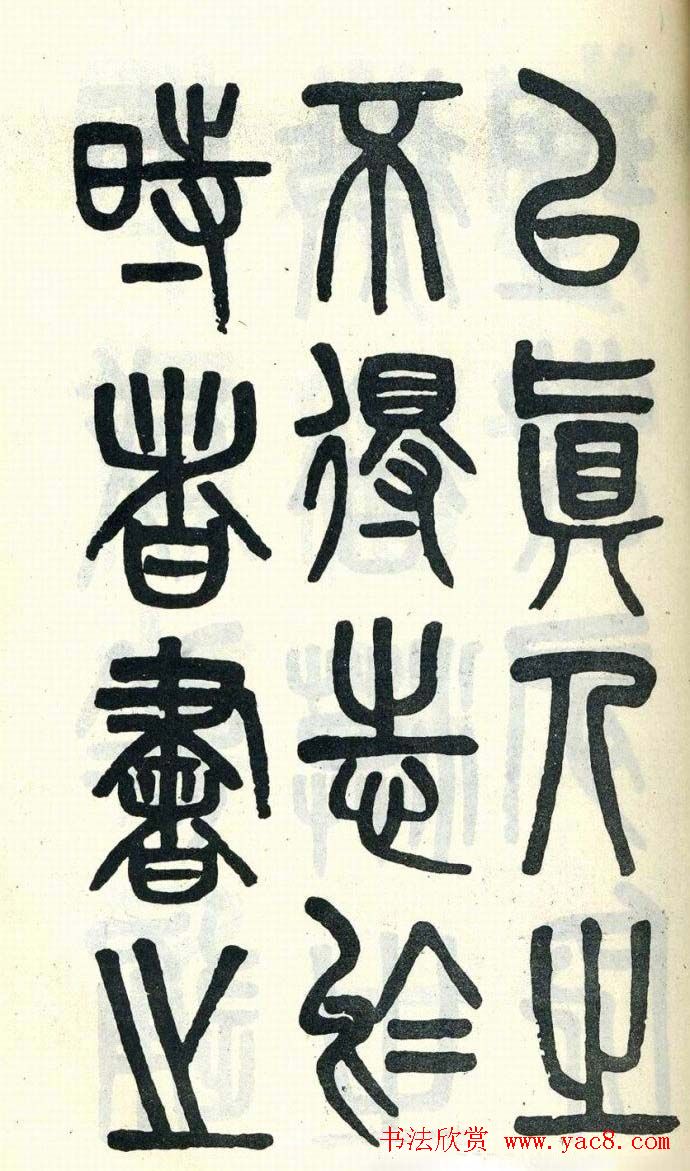 以眞人之
不得志於
時者書之
书法欣赏 www.yac8.com